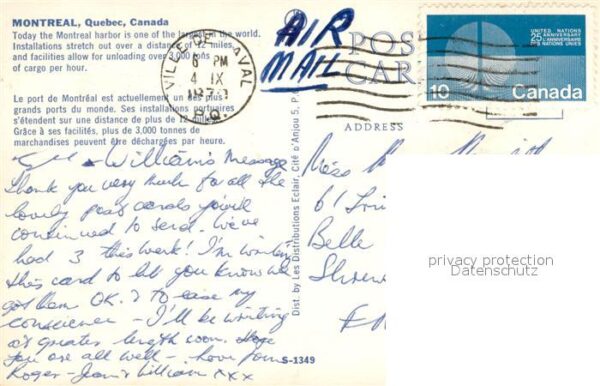 MONTREAL, Quebec, Canada
Today the Montreal harbor is one of the largest in the world.
Installations stretch out over a distance of 12 miles,
and facilities allow for unloading over 3,000 tons
of cargo per hour.
Le port de Montréal est actuellement un des plus
grands ports du monde. Ses installations portuaires
s'étendent sur une distance de plus de 12 milles.
Grâce à ses facilités, plus de 3,000 tonnes de
marchandises peuvent être déchargées par heure.
William's Message
Thank you very much for all the
lovely post cards you've
continued to send. We've
had 3 this week! I'm writing
this card to let you know we
got them OK. & to ease my
conscience - I'll be writing
at greater length soon. Hope
you are all well - love from
Roger - Jean & William xxx
S-1349
Dist. by Les Distributions Eclair, Cité d'Anjou 5, P.
VILLE DE LAVAL
PM
4 IX
P.Q.
AIR
MAIL
POS
CAR
ADDRESS
UNITED NATIONS
25TH ANNIVERSARY
ANNIVERSAIRE
DES NATIONS UNIES
10 Canada
Miss
61
Belle
privacy protection
Datenschutz